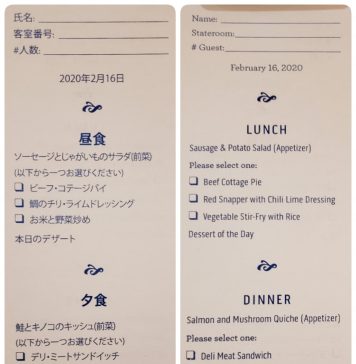 氏名:
客室番号:
#人数:
2020年2月16日
昼食
ソーセージとじゃがいものサラダ(前菜)
(以下から一つお選びください)
ビーフ・コテージパイ
鯛のチリ・ライムドレッシング
お米と野菜炒め
本日のデザート
夕食
鮭とキノコのキッシュ(前菜)
(以下から一つお選びください)
デリ・ミートサンドイッチ
Name:
Stateroom:
# Guest:
February 16, 2020
LUNCH
Sausage & Potato Salad (Appetizer)
Please select one:
Beef Cottage Pie
Red Snapper with Chili Lime Dressing
Vegetable Stir-Fry with Rice
Dessert of the Day
DINNER
Salmon and Mushroom Quiche (Appetizer)
Please select one:
Deli Meat Sandwich